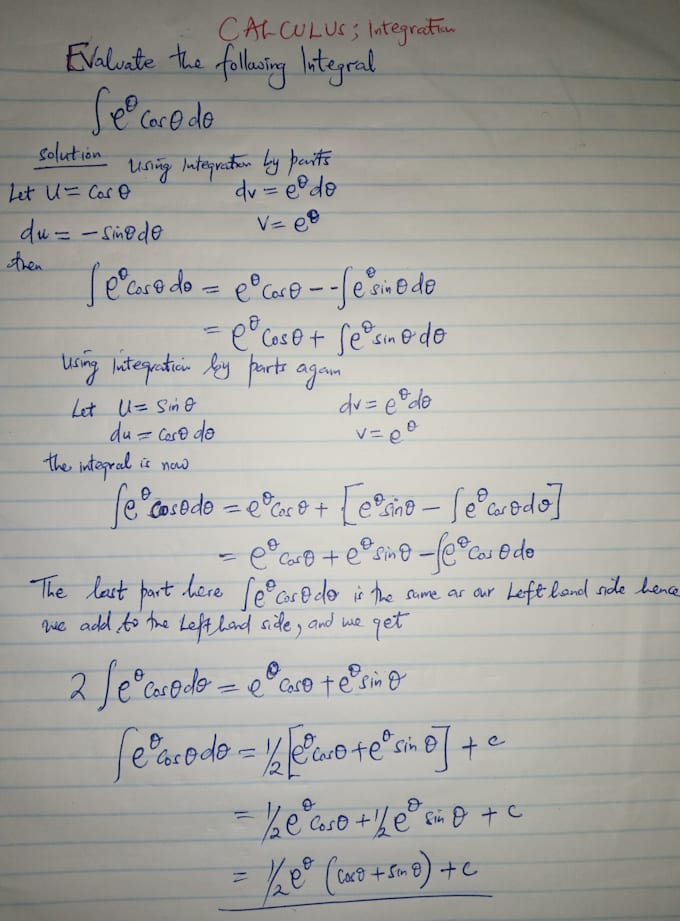 CALCULUS; Integration
Evaluate the following Integral
∫e^θ cosθ dθ
solution Using Integration by parts
Let U = Cos θ dv = e^θ dθ
du = - sinθ dθ V = e^θ
then
∫e^θ cosθ dθ = e^θ cosθ - - ∫e^θ sinθ dθ
= e^θ cosθ + ∫e^θ sinθ dθ
Using Integration by parts again
Let U = Sin θ dv = e^θ dθ
du = cosθ dθ v = e^θ
the integral is now
∫e^θ cosθ dθ = e^θ cosθ + [e^θ sinθ - ∫e^θ cosθ dθ]
= e^θ cosθ + e^θ sinθ - ∫e^θ cosθ dθ
The last part here ∫e^θ cosθ dθ is the same as our Left hand side hence
we add to the Left hand side, and we get
2 ∫e^θ cosθ dθ = e^θ cosθ + e^θ sinθ
∫e^θ cosθ dθ = 1/2 [e^θ cosθ + e^θ sin θ] + c
= 1/2 e^θ cosθ + 1/2 e^θ sin θ + c
= 1/2 e^θ (cosθ + sinθ) + c